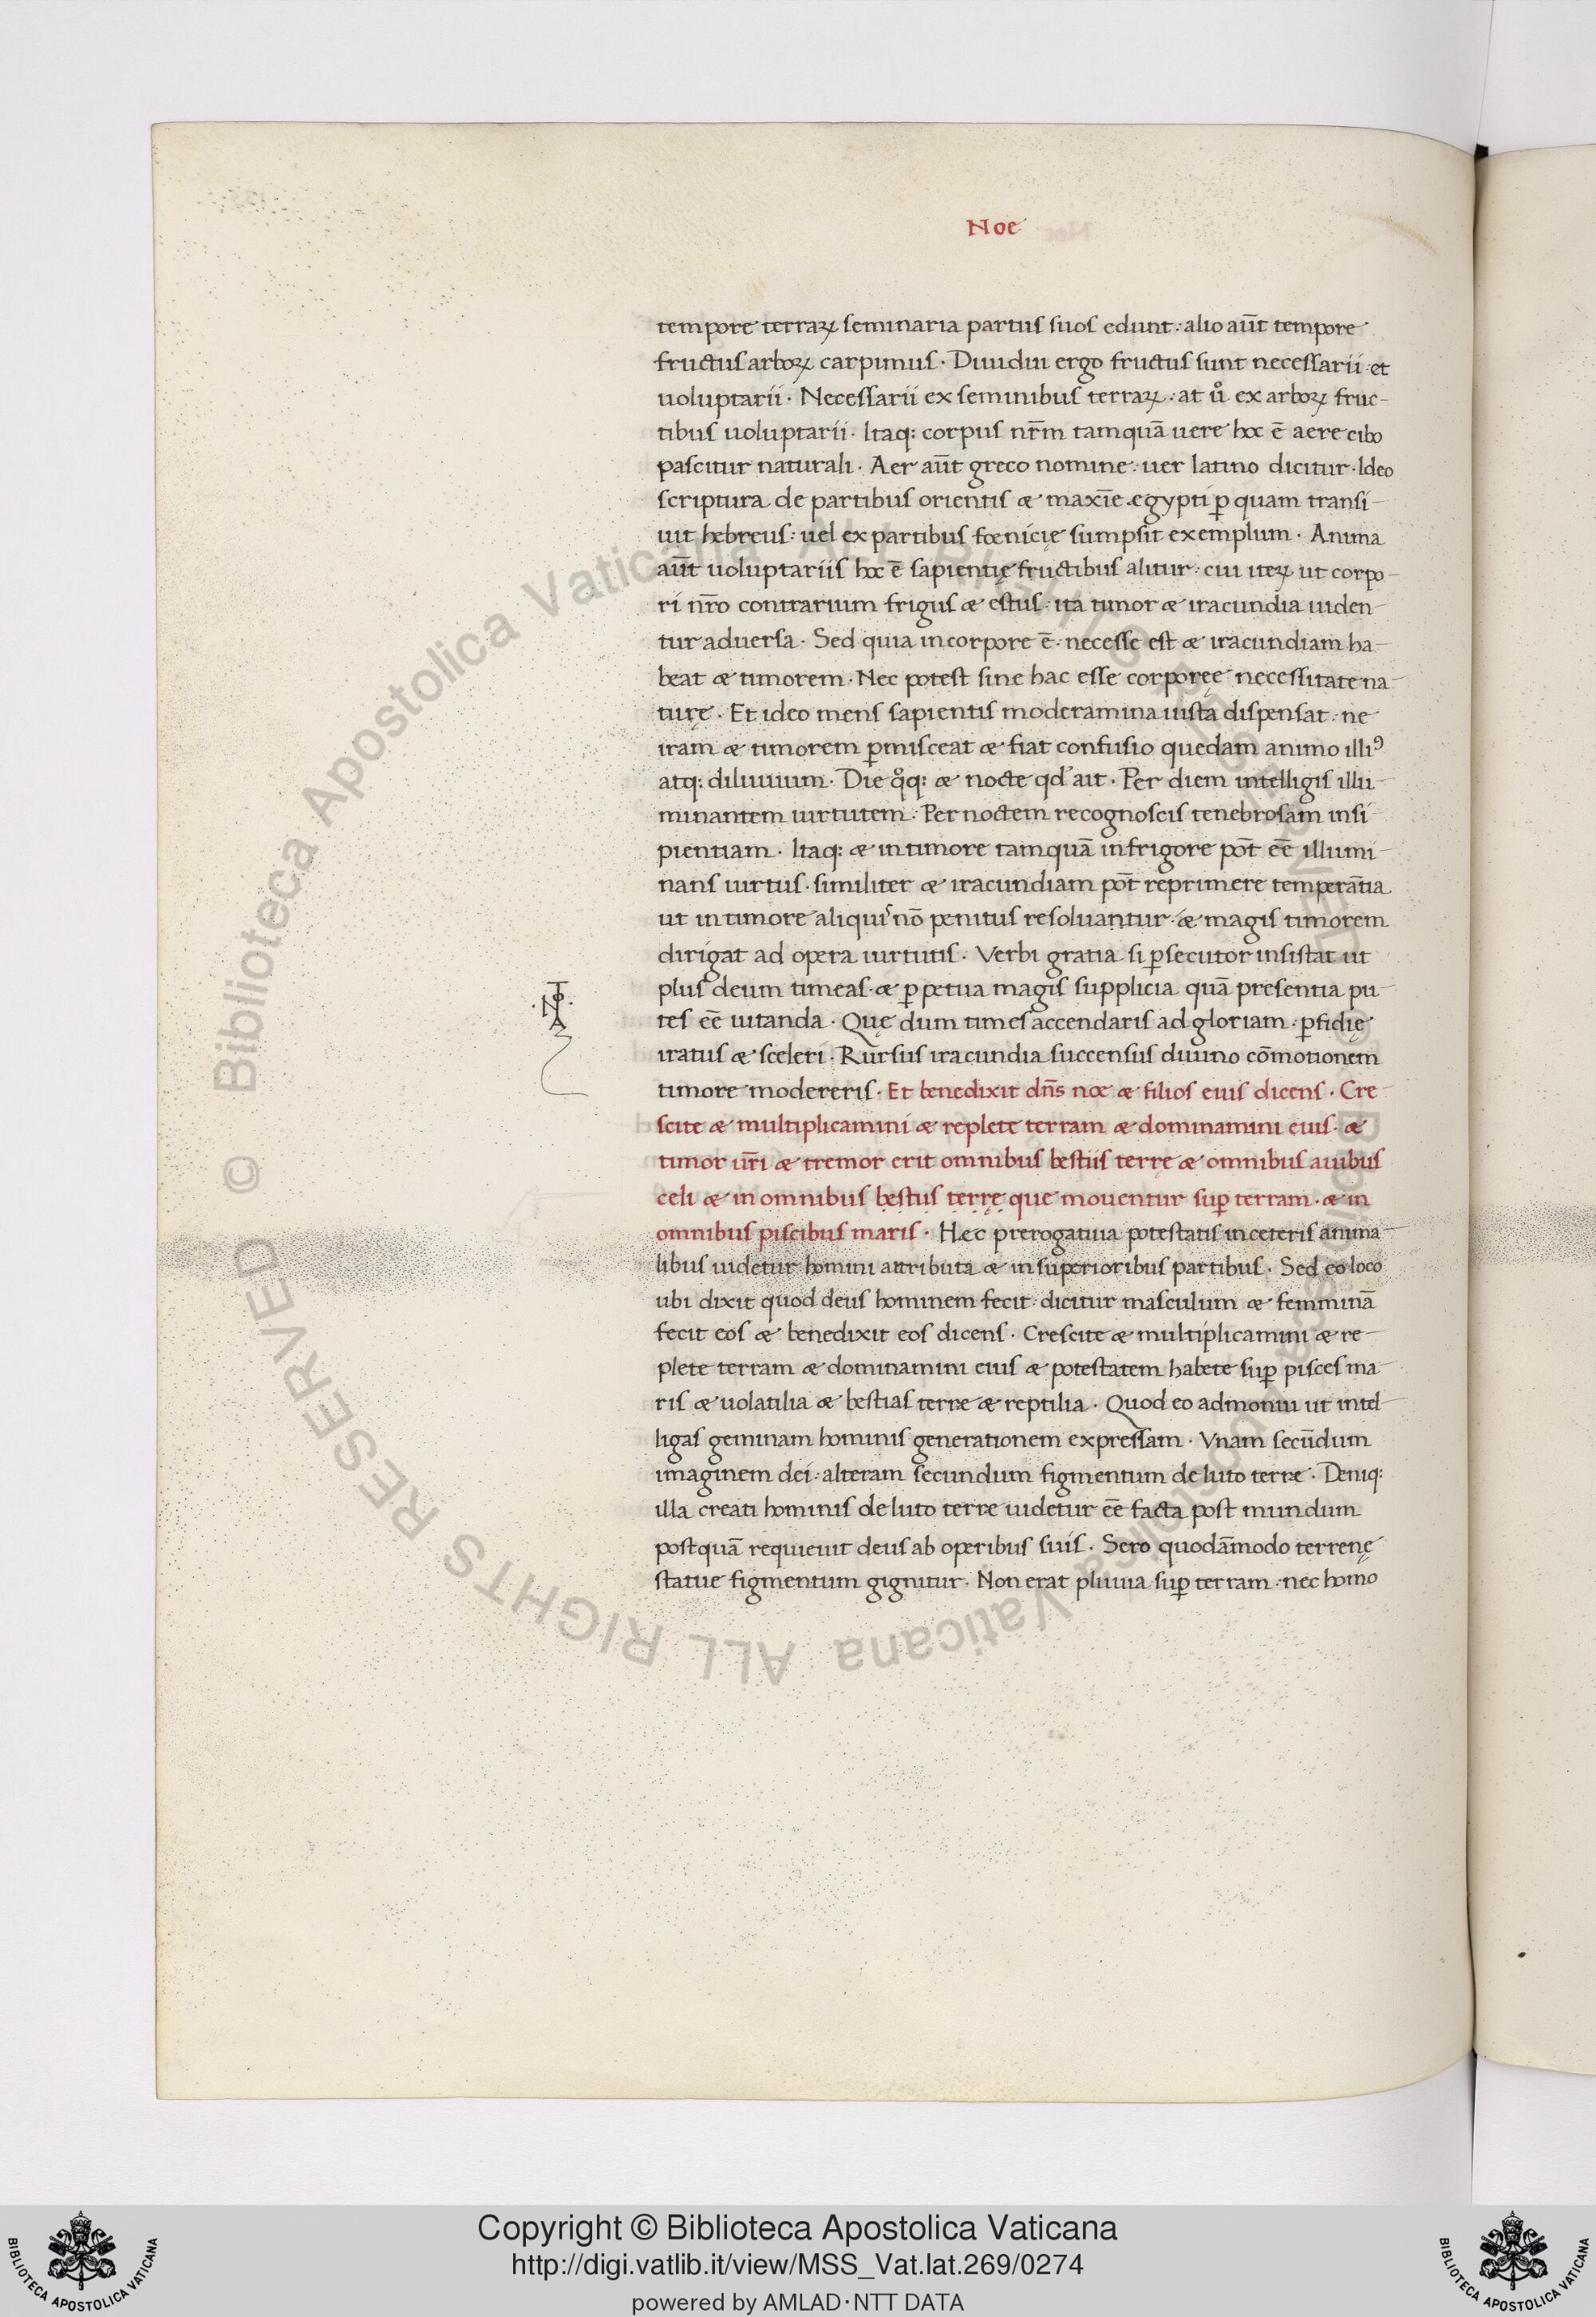 Noe
tempore terraꝝ seminaria partus suos edunt : alio aūt tempore
fructus arboꝝ carpimus · Diuidui ergo fructus sunt necessarii · et
uoluptarii · Necessarii ex seminibus terraꝝ : at uͦ ex arboꝝ fruc-
tibus uoluptarii · Itaq: corpus nr̄m tamquā uere hoc ē aere cibo
pascitur naturali · Aer aūt greco nomine : uer latino dicitur · Ideo
scriptura de partibus orientis & maxīe ęgypti ꝑ quam transi-
uit hebreus : uel ex partibus fœnicię sumpsit exemplum · Anima
aūt uoluptariis hoc ē sapientię fructibus alitur : cui iteꝝ ut corpo-
ri nr̄o contrarium frigus & estus : ita timor & iracundia uiden-
tur aduersa · Sed quia in corpore ē · necesse est & iracundiam ha-
beat & timorem · Nec potest sine hac esse corporeę necessitate na-
turę · Et ideo mens sapientis moderamina iusta dispensat : ne
iram & timorem ꝑmisceat & fiat confusio quedam animo illiꝰ
atq: diluuium · Die qͦq: & nocte qd' ait · Per diem intelligis illu-
minantem uirtutem · Per noctem recognoscis tenebrosam insi-
pientiam · Itaq: & in timore tamquā in frigore pōt eē illumi-
nans uirtus · similiter & iracundiam pōt reprimere temperātia
ut in timore aliqui nō penitus resoluantur · & magis timorem
dirigat ad opera uirtutis · Verbi gratia si ꝑsecutor insistat ut
plus deum timeas · & ꝑpetua magis supplicia quā presentia pu-
tes eē uitanda · Quę dum times accendaris ad gloriam · ꝑfidię
iratus & sceleri · Rursus iracundia succensus diuino cōmotionem
timore modereris · Et benedixit dn̄s noe & filios eius dicens · Cre-
scite & multiplicamini & replete terram & dominamini eius · &
timor ur̄i & tremor erit omnibus bestiis terrę & omnibus auibus
celi & in omnibus bestiis terrę que mouentur suꝑ terram · & in
omnibus piscibus maris · Hec prerogatiua potestatis in ceteris anima-
libus uidetur homini attributa & in superioribus partibus · Sed eo loco
ubi dixit quod deus hominem fecit · dicitur masculum & femminā
fecit eos & benedixit eos dicens · Crescite & multiplicamini & re-
plete terram & dominamini eius & potestatem habete suꝑ pisces ma-
ris & uolatilia & bestias terre & reptilia · Quod eo admonui ut intel-
ligas geminam hominis generationem expressam · Vnam secūdum
imaginem dei : alteram secundum figmentum de luto terre · Deniq:
illa creati hominis de luto terre uidetur eē facta post mundum
postquā requieuit deus ab operibus suis · Sero quodāmodo terrenę
statue figmentum gignitur · Non erat pluuia suꝑ terram · nec homo
© Biblioteca Apostolica Vaticana ALL RIGHTS RESERVED
© Biblioteca Apostolica Vaticana ALL RIGHTS RESERVED
Copyright © Biblioteca Apostolica Vaticana
http://digi.vatlib.it/view/MSS_Vat.lat.269/0274
powered by AMLAD·NTT DATA
BIBLIOTECA APOSTOLICA VATICANA
BIBLIOTECA APOSTOLICA VATICANA